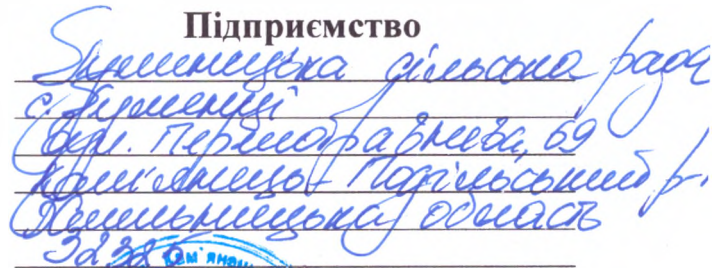 Підприємство
Гуменецька сільська рада
с. Гуменці
вул. Першотравнева, 69
Кам'янець-Подільський р-
Хмельницька область
32326